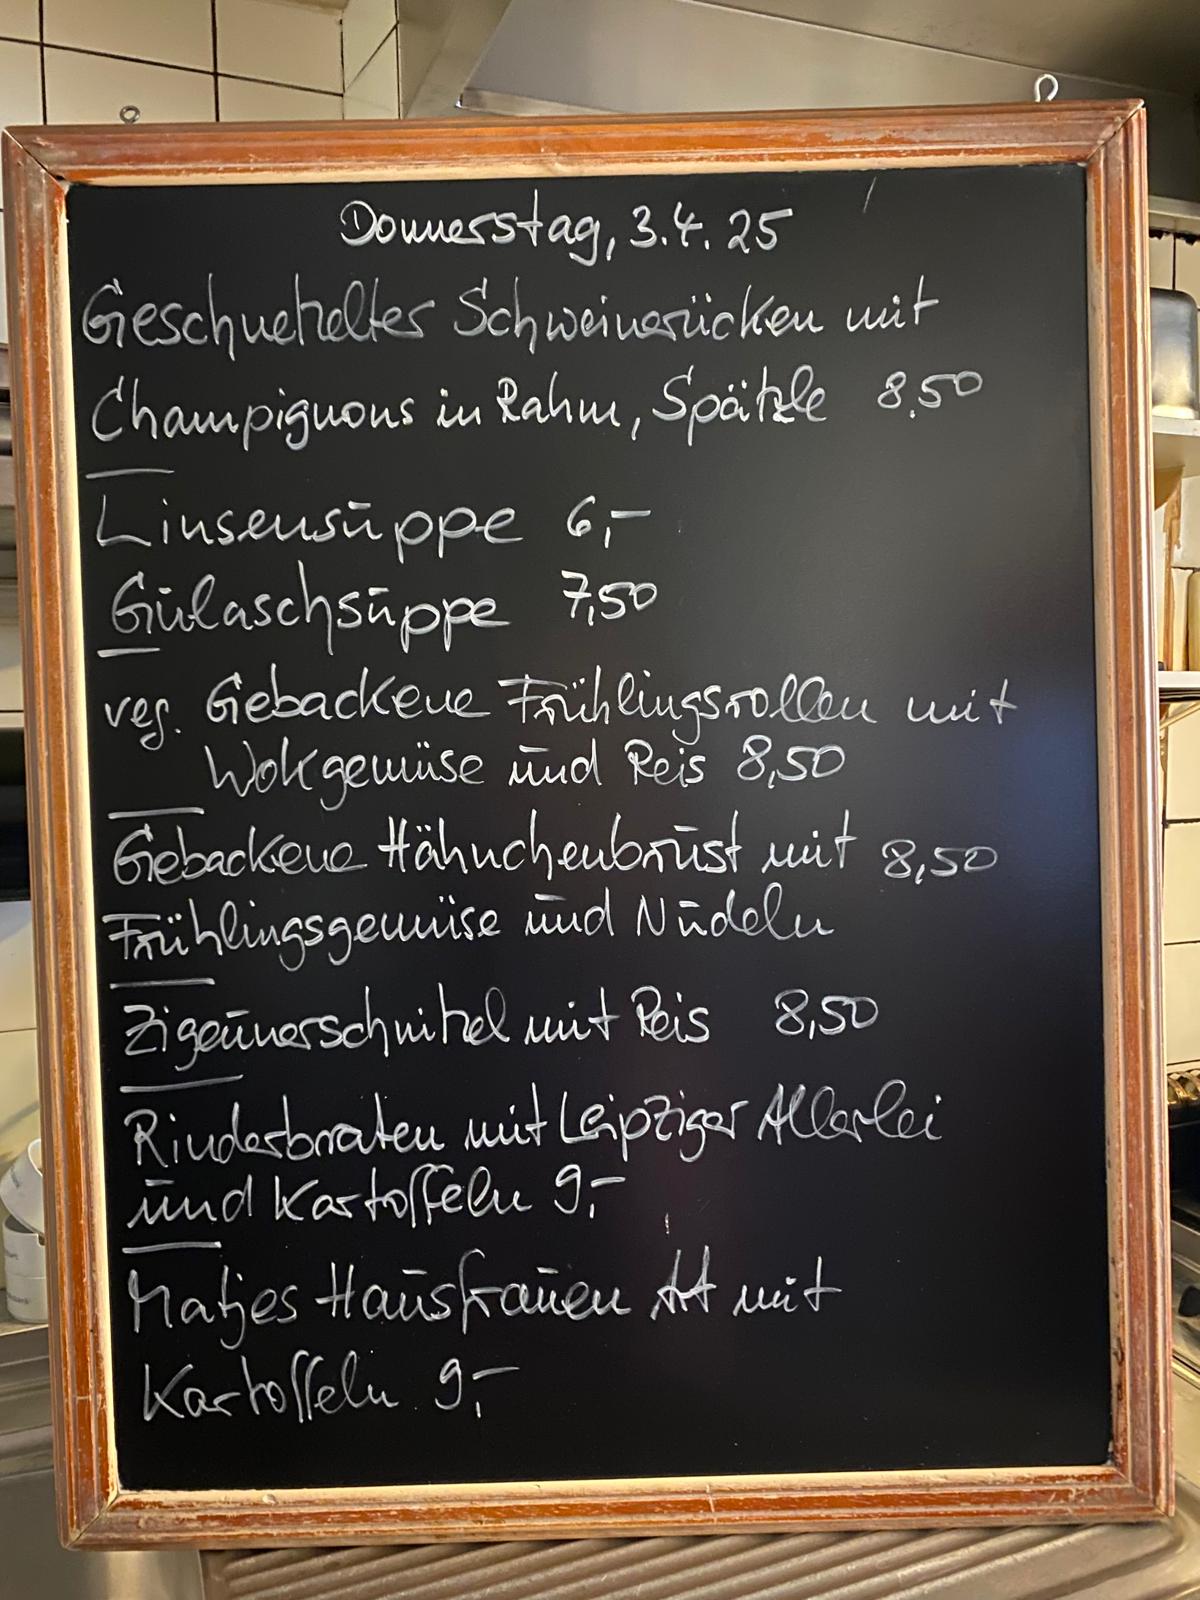 Donnerstag, 3.4.25
Geschnetzeltes Schweinerücken mit
Champignons in Rahm, Spätzle 8.50
Linsensuppe 6,-
Gulaschsuppe 7,50
veg. Gebackene Frühlingsrollen mit
Wokgemüse und Reis 8,50
Gebackene Hähnchenbrust mit 8,50
Frühlingsgemüse und Nudeln
Zigeunerschnitzel mit Reis 8,50
Rinderbraten mit Leipziger Allerlei
und Kartoffeln 9,-
Matjes Hausfrauen Art mit
Kartoffeln 9,-